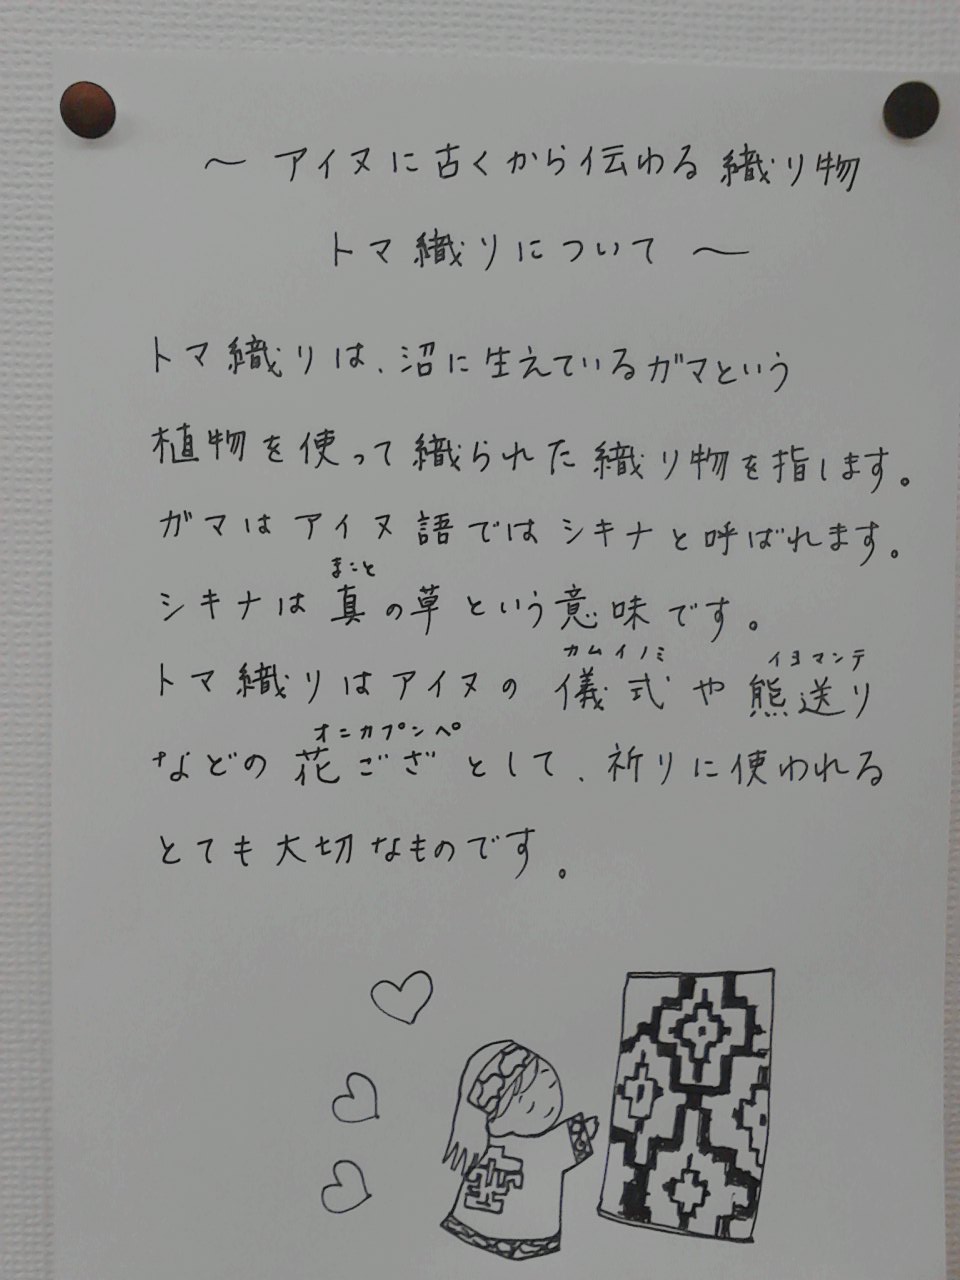 ～ アイヌに古くから伝わる織り物
トマ織りについて ～
トマ織りは、沼に生えているガマという
植物を使って織られた織り物を指します。
ガマはアイヌ語ではシキナと呼ばれます。
まこと
シキナは真の草という意味です。
カムイノミ イヨマンテ
トマ織りはアイヌの儀式や熊送り
オニカプンペ
などの花ござとして、祈りに使われる
とても大切なものです。